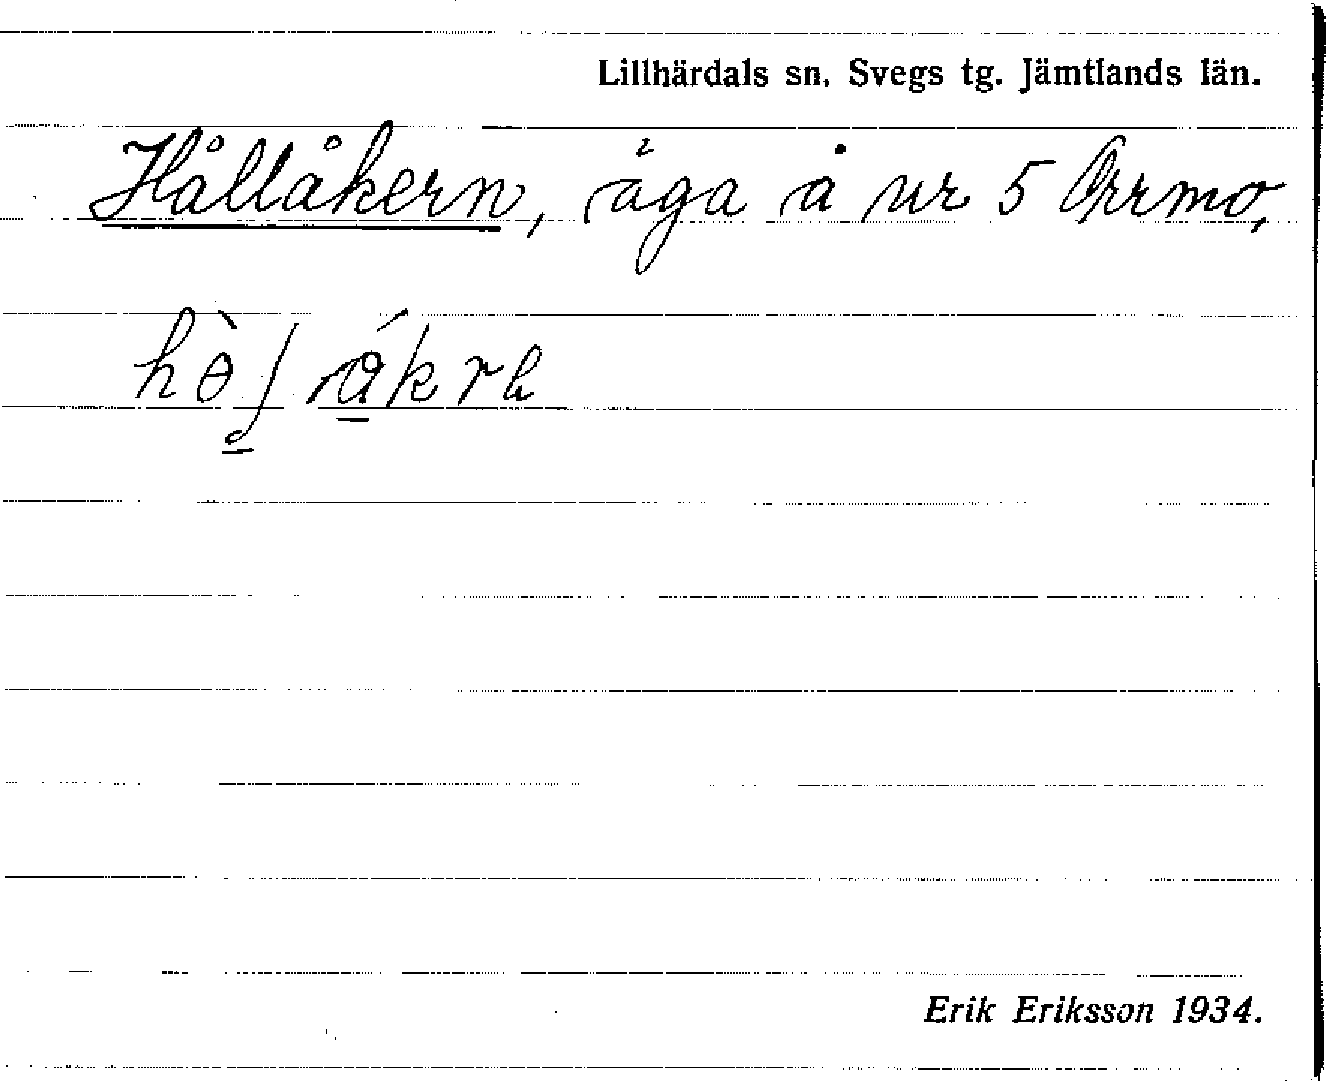 Lillhärdals sn. Svegs tg. Jämtlands län.
Hållåkern, åga å nr 5 Orrmo.
Erik Eriksson 1934.